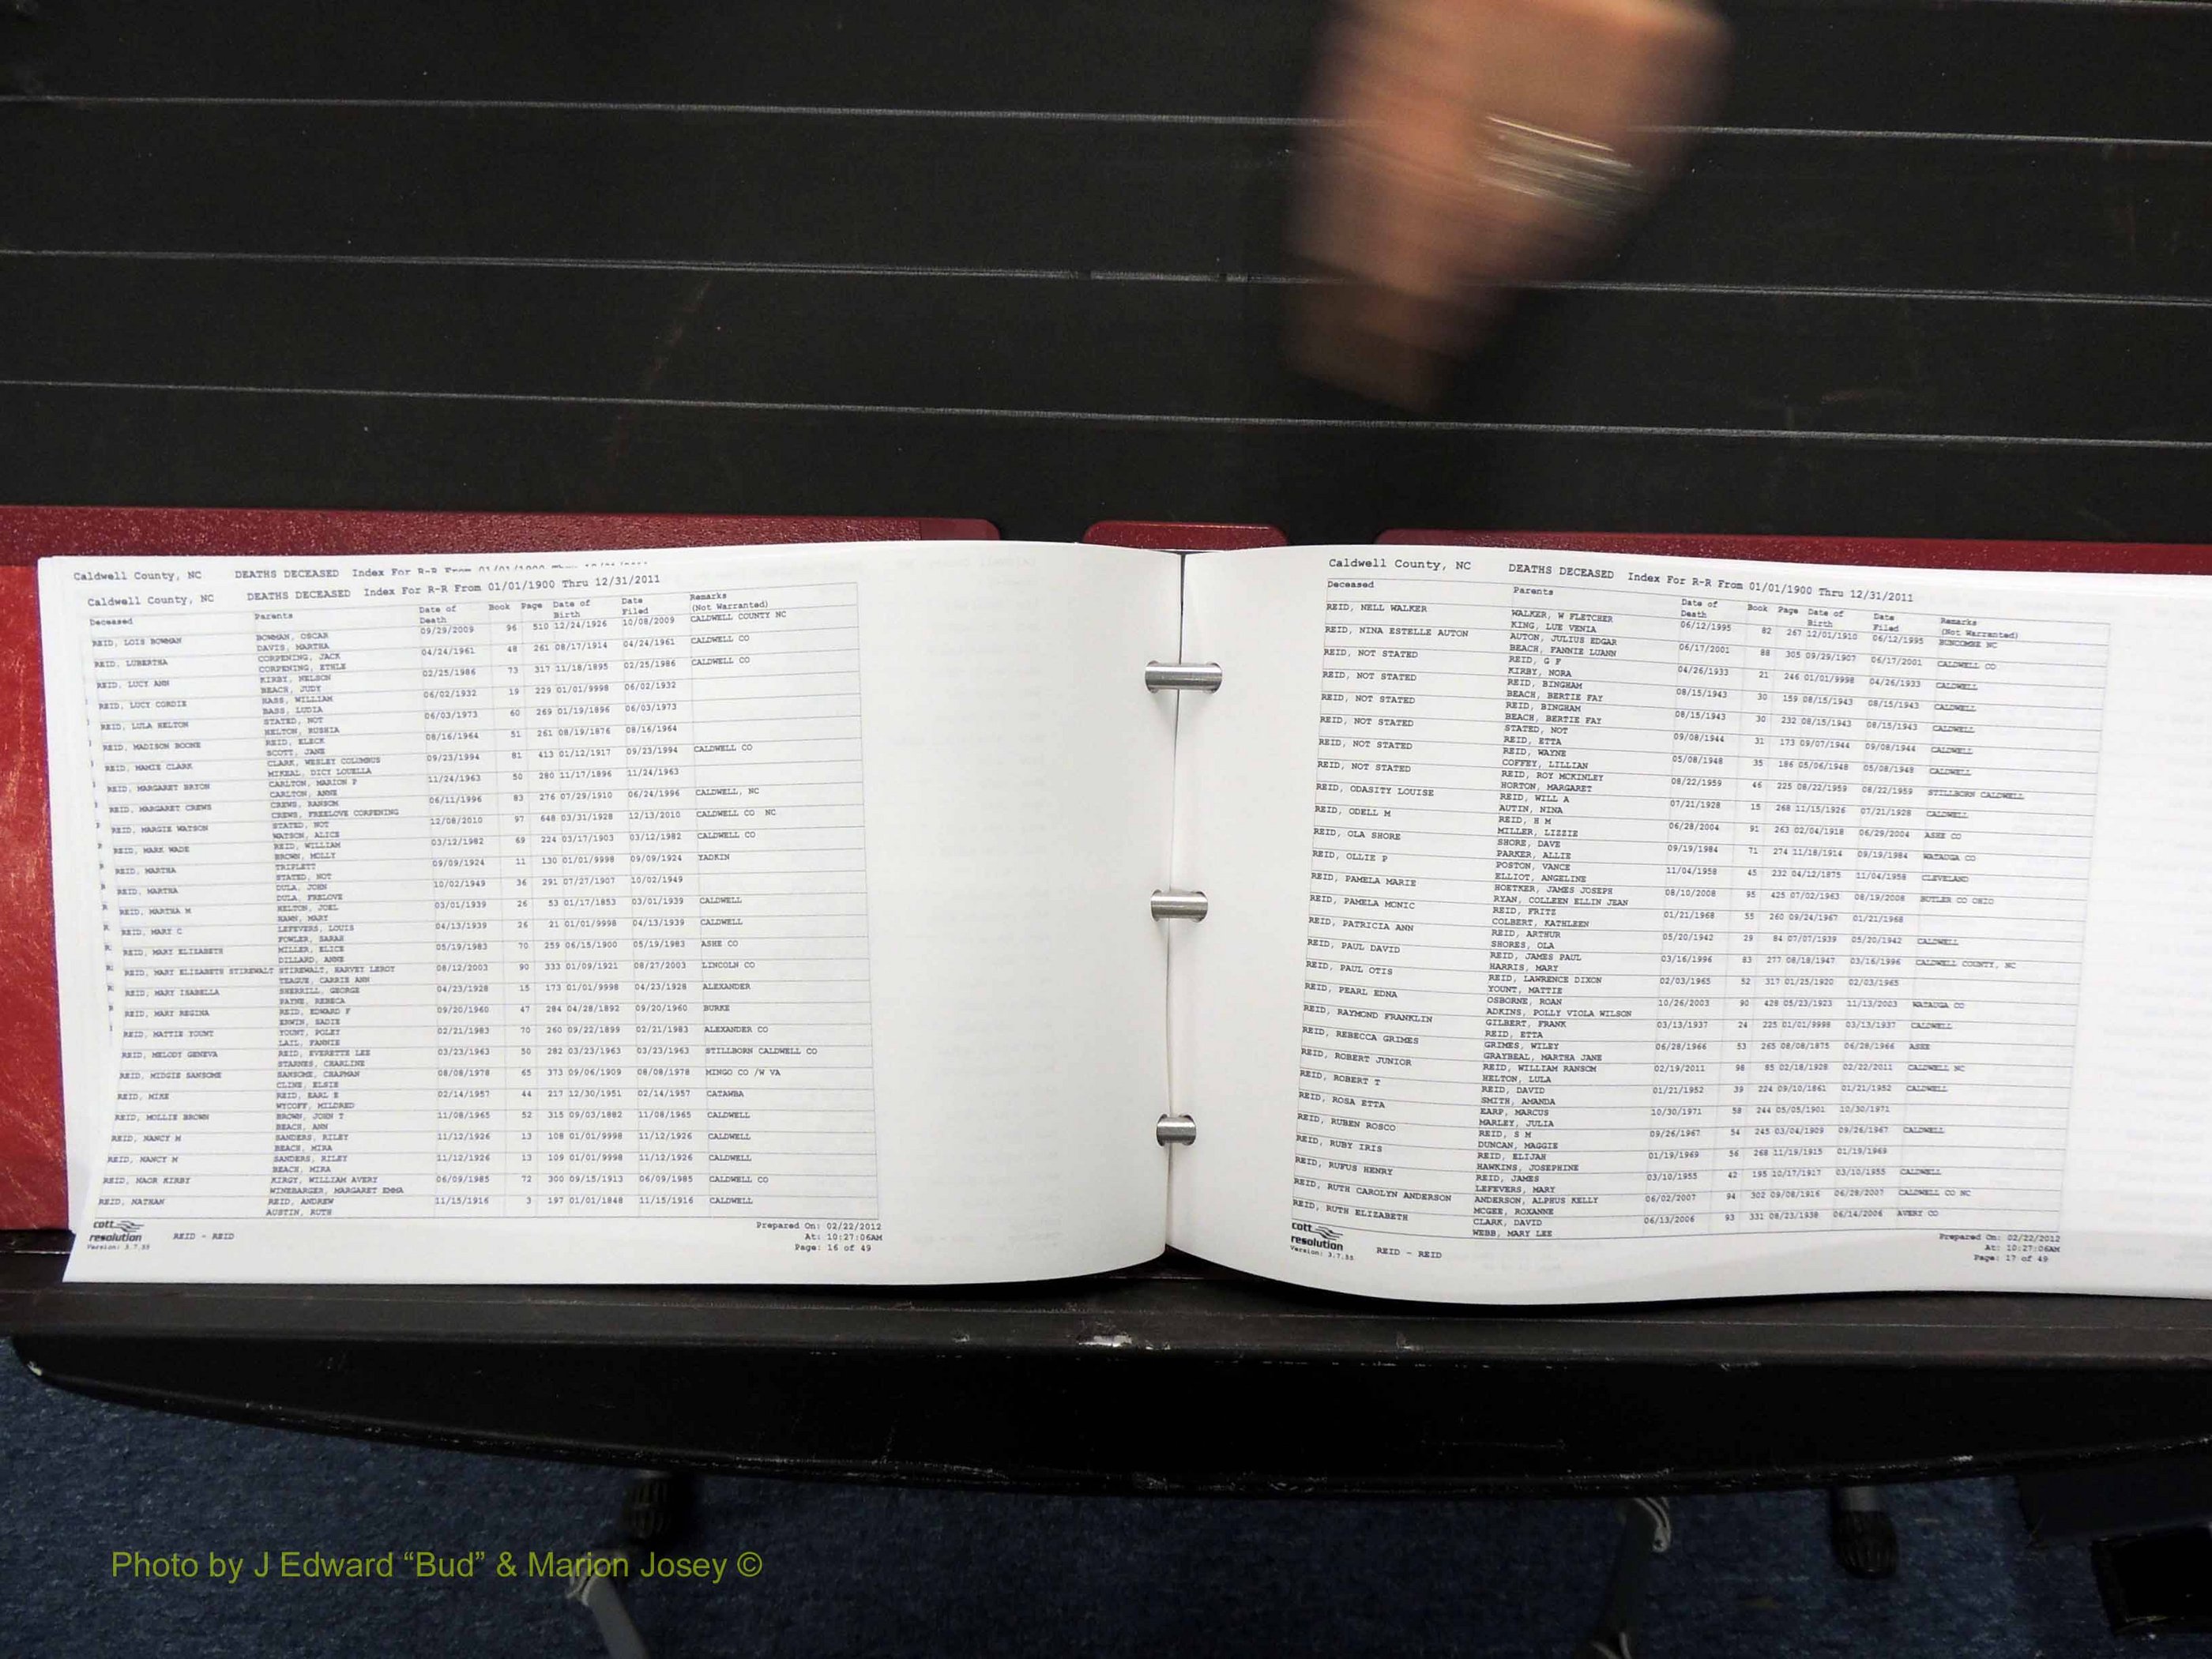 Caldwell County, NC DEATHS DECEASED Index For R-R From 01/01/1900 Thru
Caldwell County, NC DEATHS DECEASED Index For R-R From 01/01/1900 Thru 12/31/2011
Deceased Parents Date of Death Book Page Date of Birth Date Filed Remarks (Not Warranted)
REID, LOIS BOWMAN BOWMAN, OSCAR 09/29/2009 96 510 12/24/1926 10/08/2009 CALDWELL COUNTY NC
DAVIS, MARTHA
REID, LUBERTHA CORPENING, JACK 04/24/1961 48 261 08/17/1914 04/24/1961 CALDWELL CO
CORPENING, ETHLE
REID, LUCY ANN KIRBY, NELSON 02/25/1986 73 317 11/18/1895 02/25/1986 CALDWELL CO
BEACH, JUDY
REID, LUCY CORDIE HASS, WILLIAM 06/02/1932 19 229 01/01/9998 06/02/1932
BASS, LUDIA
REID, LULA HELTON STATED, NOT 06/03/1973 60 269 01/19/1896 06/03/1973
HELTON, RUSHIA
REID, MADISON BOONE REID, ELECK 08/16/1964 51 261 08/19/1876 08/16/1964
SCOTT, JANE
REID, MAMIE CLARK CLARK, WESLEY COLUMBUS 09/23/1994 81 413 01/12/1917 09/23/1994 CALDWELL CO
MIKEAL, DICY LOUELLA
REID, MARGARET BRYON CARLTON, MARION P 11/24/1963 50 280 11/17/1896 11/24/1963
CARLTON, ANNE
REID, MARGARET CREWS CREWS, RANSOM 06/11/1996 83 276 07/29/1910 06/24/1996 CALDWELL, NC
CREWS, FREELOVE CORPENING
REID, MARGIE WATSON STATED, NOT 12/08/2010 97 648 03/31/1928 12/13/2010 CALDWELL CO NC
WATSON, ALICE
REID, MARK WADE REID, WILLIAM 03/12/1982 69 224 03/17/1903 03/12/1982 CALDWELL CO
BROWN, MOLLY
REID, MARTHA TRIPLETT 09/09/1924 11 130 01/01/9998 09/09/1924 YADKIN
STATED, NOT
REID, MARTHA DULA, JOHN 10/02/1949 36 291 07/27/1907 10/02/1949
DULA, FRELOVE
REID, MARTHA M HELTON, JOEL 03/01/1939 26 53 01/17/1853 03/01/1939 CALDWELL
HAWN, MARY
REID, MARY C LEFEVERS, LOUIS 04/13/1939 26 21 01/01/9998 04/13/1939 CALDWELL
FOWLER, SARAH
REID, MARY ELIZABETH MILLER, ELICE 05/19/1983 70 259 06/15/1900 05/19/1983 ASHE CO
DILLARD, ANNE
REID, MARY ELIZABETH STIREWALT STIREWALT, HARVEY LEROY 08/12/2003 90 333 01/09/1921 08/27/2003 LINCOLN CO
TEAGUE, CARRIE ANN
REID, MARY ISABELLA SHERRILL, GEORGE 04/23/1928 15 173 01/01/9998 04/23/1928 ALEXANDER
PAYNE, REBECA
REID, MARY REGINA REID, EDWARD F 09/20/1960 47 284 04/28/1892 09/20/1960 BURKE
ERWIN, SADIE
REID, MATTIE YOUNT YOUNT, POLEY 02/21/1983 70 260 09/22/1899 02/21/1983 ALEXANDER CO
LAIL, FANNIE
REID, MELODY GENEVA REID, EVERETTE LEE 03/23/1963 50 282 03/23/1963 03/23/1963 STILLBORN CALDWELL CO
STARNES, CHARLINE
REID, MIDGIE SANSOME SANSOME, CHAPMAN 08/08/1978 65 373 09/06/1909 08/08/1978 MINGO CO /W VA
CLINE, ELSIE
REID, MIKE REID, EARL E 02/14/1957 44 217 12/30/1951 02/14/1957 CATAWBA
WYCOFF, MILDRED
REID, MOLLIE BROWN BROWN, JOHN T 11/08/1965 52 315 09/03/1882 11/08/1965 CALDWELL
BEACH, ANN
REID, NANCY M SANDERS, RILEY 11/12/1926 13 108 01/01/9998 11/12/1926 CALDWELL
BEACH, MIRA
REID, NANCY M SANDERS, RILEY 11/12/1926 13 109 01/01/9998 11/12/1926 CALDWELL
BEACH, MIRA
REID, NAOR KIRBY KIRGY, WILLIAM AVERY 06/09/1985 72 300 09/15/1913 06/09/1985 CALDWELL CO
WINEBARGER, MARGARET EMMA
REID, NATHAN REID, ANDREW 11/15/1916 3 197 01/01/1848 11/15/1916 CALDWELL
AUSTIN, RUTH
cott
resolution
Version: 3.7.55
REID - REID
Prepared On: 02/22/2012
At: 10:27:06AM
Page: 16 of 49
Caldwell County, NC DEATHS DECEASED Index For R-R From 01/01/1900 Thru 12/31/2011
Deceased Parents Date of Death Book Page Date of Birth Date Filed Remarks (Not Warranted)
REID, NELL WALKER WALKER, W FLETCHER 06/12/1995 82 267 12/01/1910 06/12/1995 BUNCOMBE NC
KING, LUE VENIA
REID, NINA ESTELLE AUTON AUTON, JULIUS EDGAR 06/17/2001 88 305 09/29/1907 06/17/2001 CALDWELL CO
BEACH, FANNIE LUANN
REID, NOT STATED REID, G F 04/26/1933 21 246 01/01/9998 04/26/1933 CALDWELL
KIRBY, NORA
REID, NOT STATED REID, BINGHAM 08/15/1943 30 159 08/15/1943 08/15/1943 CALDWELL
BEACH, BERTIE FAY
REID, NOT STATED REID, BINGHAM 08/15/1943 30 232 08/15/1943 08/15/1943 CALDWELL
BEACH, BERTIE FAY
REID, NOT STATED STATED, NOT 09/08/1944 31 173 09/07/1944 09/08/1944 CALDWELL
REID, ETTA
REID, NOT STATED REID, WAYNE 05/08/1948 35 186 05/06/1948 05/08/1948 CALDWELL
COFFEY, LILLIAN
REID, NOT STATED REID, ROY MCKINLEY 08/22/1959 46 225 08/22/1959 08/22/1959 STILLBORN CALDWELL
HORTON, MARGARET
REID, ODASITY LOUISE REID, WILL A 07/21/1928 15 268 11/15/1926 07/21/1928 CALDWELL
AUTIN, NINA
REID, ODELL M REID, H M 06/28/2004 91 263 02/04/1918 06/29/2004 ASHE CO
MILLER, LIZZIE
REID, OLA SHORE SHORE, DAVE 09/19/1984 71 274 11/18/1914 09/19/1984 WATAUGA CO
PARKER, ALLIE
REID, OLLIE P POSTON, VANCE 11/04/1958 45 232 04/12/1875 11/04/1958 CLEVELAND
ELLIOT, ANGELINE
REID, PAMELA MARIE HOETKER, JAMES JOSEPH 08/10/2008 95 425 07/02/1963 08/19/2008 BUTLER CO OHIO
RYAN, COLLEEN ELLIN JEAN
REID, PAMELA MONIC REID, FRITZ 01/21/1968 55 260 09/24/1967 01/21/1968
COLBERT, KATHLEEN
REID, PATRICIA ANN REID, ARTHUR 05/20/1942 29 84 07/07/1939 05/20/1942 CALDWELL
SHORES, OLA
REID, PAUL DAVID REID, JAMES PAUL 03/16/1996 83 277 08/18/1947 03/16/1996 CALDWELL COUNTY, NC
HARRIS, MARY
REID, PAUL OTIS REID, LAWRENCE DIXON 02/03/1965 52 317 01/25/1920 02/03/1965
YOUNT, MATTIE
REID, PEARL EDNA OSBORNE, ROAN 10/26/2003 90 428 05/23/1923 11/13/2003 WATAUGA CO
ADKINS, POLLY VIOLA WILSON
REID, RAYMOND FRANKLIN GILBERT, FRANK 03/13/1937 24 225 01/01/9998 03/13/1937 CALDWELL
REID, ETTA
REID, REBECCA GRIMES GRIMES, WILEY 06/28/1966 53 265 08/08/1875 06/28/1966 ASHE
GRAYBEAL, MARTHA JANE
REID, ROBERT JUNIOR REID, WILLIAM RANSOM 02/19/2011 98 85 02/18/1928 02/22/2011 CALDWELL NC
HELTON, LULA
REID, ROBERT T REID, DAVID 01/21/1952 39 224 09/10/1861 01/21/1952 CALDWELL
SMITH, AMANDA
REID, ROSA ETTA EARP, MARCUS 10/30/1971 58 244 05/05/1901 10/30/1971
MARLEY, JULIA
REID, RUBEN ROSCO REID, S M 09/26/1967 54 245 03/04/1909 09/26/1967 CALDWELL
DUNCAN, MAGGIE
REID, RUBY IRIS REID, ELIJAH 01/19/1969 56 268 11/19/1915 01/19/1969
HAWKINS, JOSEPHINE
REID, RUFUS HENRY REID, JAMES 03/10/1955 42 195 10/17/1917 03/10/1955 CALDWELL
LEFEVERS, MARY
REID, RUTH CAROLYN ANDERSON ANDERSON, ALPHUS KELLY 06/02/2007 94 302 09/08/1916 06/28/2007 CALDWELL CO NC
MCGEE, ROXANNE
REID, RUTH ELIZABETH CLARK, DAVID 06/13/2006 93 331 08/23/1938 06/14/2006 AVERY CO
WEBB, MARY LEE
cott
resolution
Version: 3.7.55
REID - REID
Prepared On: 02/22/2012
At: 10:27:06AM
Page: 17 of 49
Photo by J Edward “Bud” & Marion Josey ©